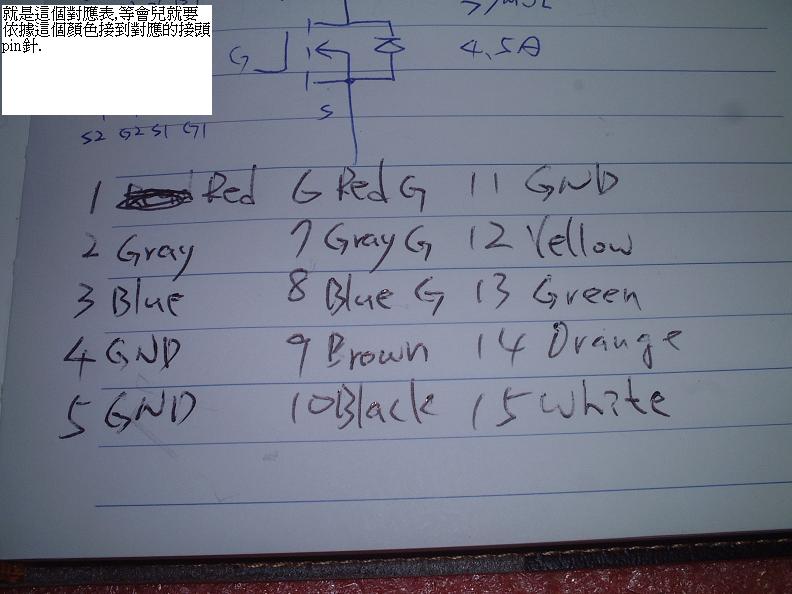 就是這個對應表,等會兒就要
依據這個顏色接到對應的接頭
pin針.
G
4.5A
S
S2 G2 S1 G1
1 Red 6 Red G 11 GND
2 Gray 7 Gray G 12 Yellow
3 Blue 8 Blue G 13 Green
4 GND 9 Brown 14 Orange
5 GND 10 Black 15 White